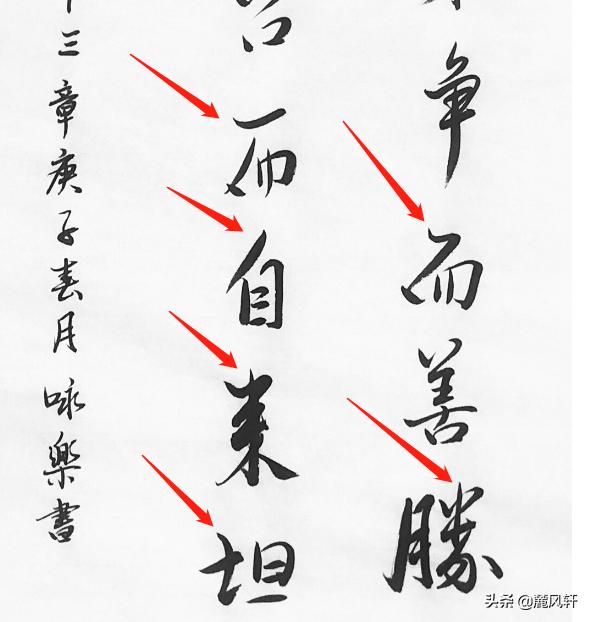 争而善勝
召而自来坦
三章庚子春月咏樂書
头条 @麓风轩